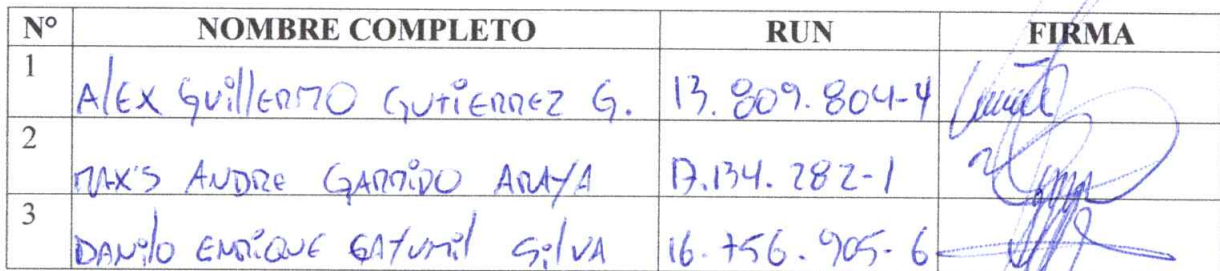 N° NOMBRE COMPLETO RUN FIRMA
1 Alex Guillermo Gutierrez G. 13.809.804-4
2 MAX'S ANDRE GARRIDO ARAYA 17.134.282-1
3 DANilo ENRiQUE SilVA 16.756.905-6